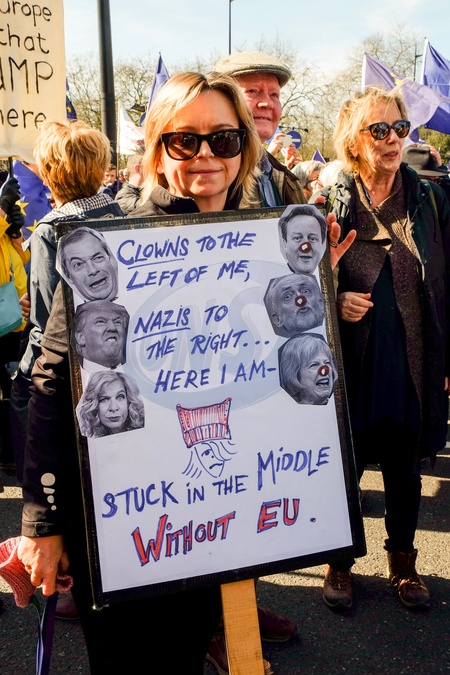 urope
that
UMP
ere
CLOWNS TO THE
LEFT OF ME,
NAZIS TO
THE RIGHT...
HERE I AM-
STUCK IN THE MIDDLE
WITHOUT EU.